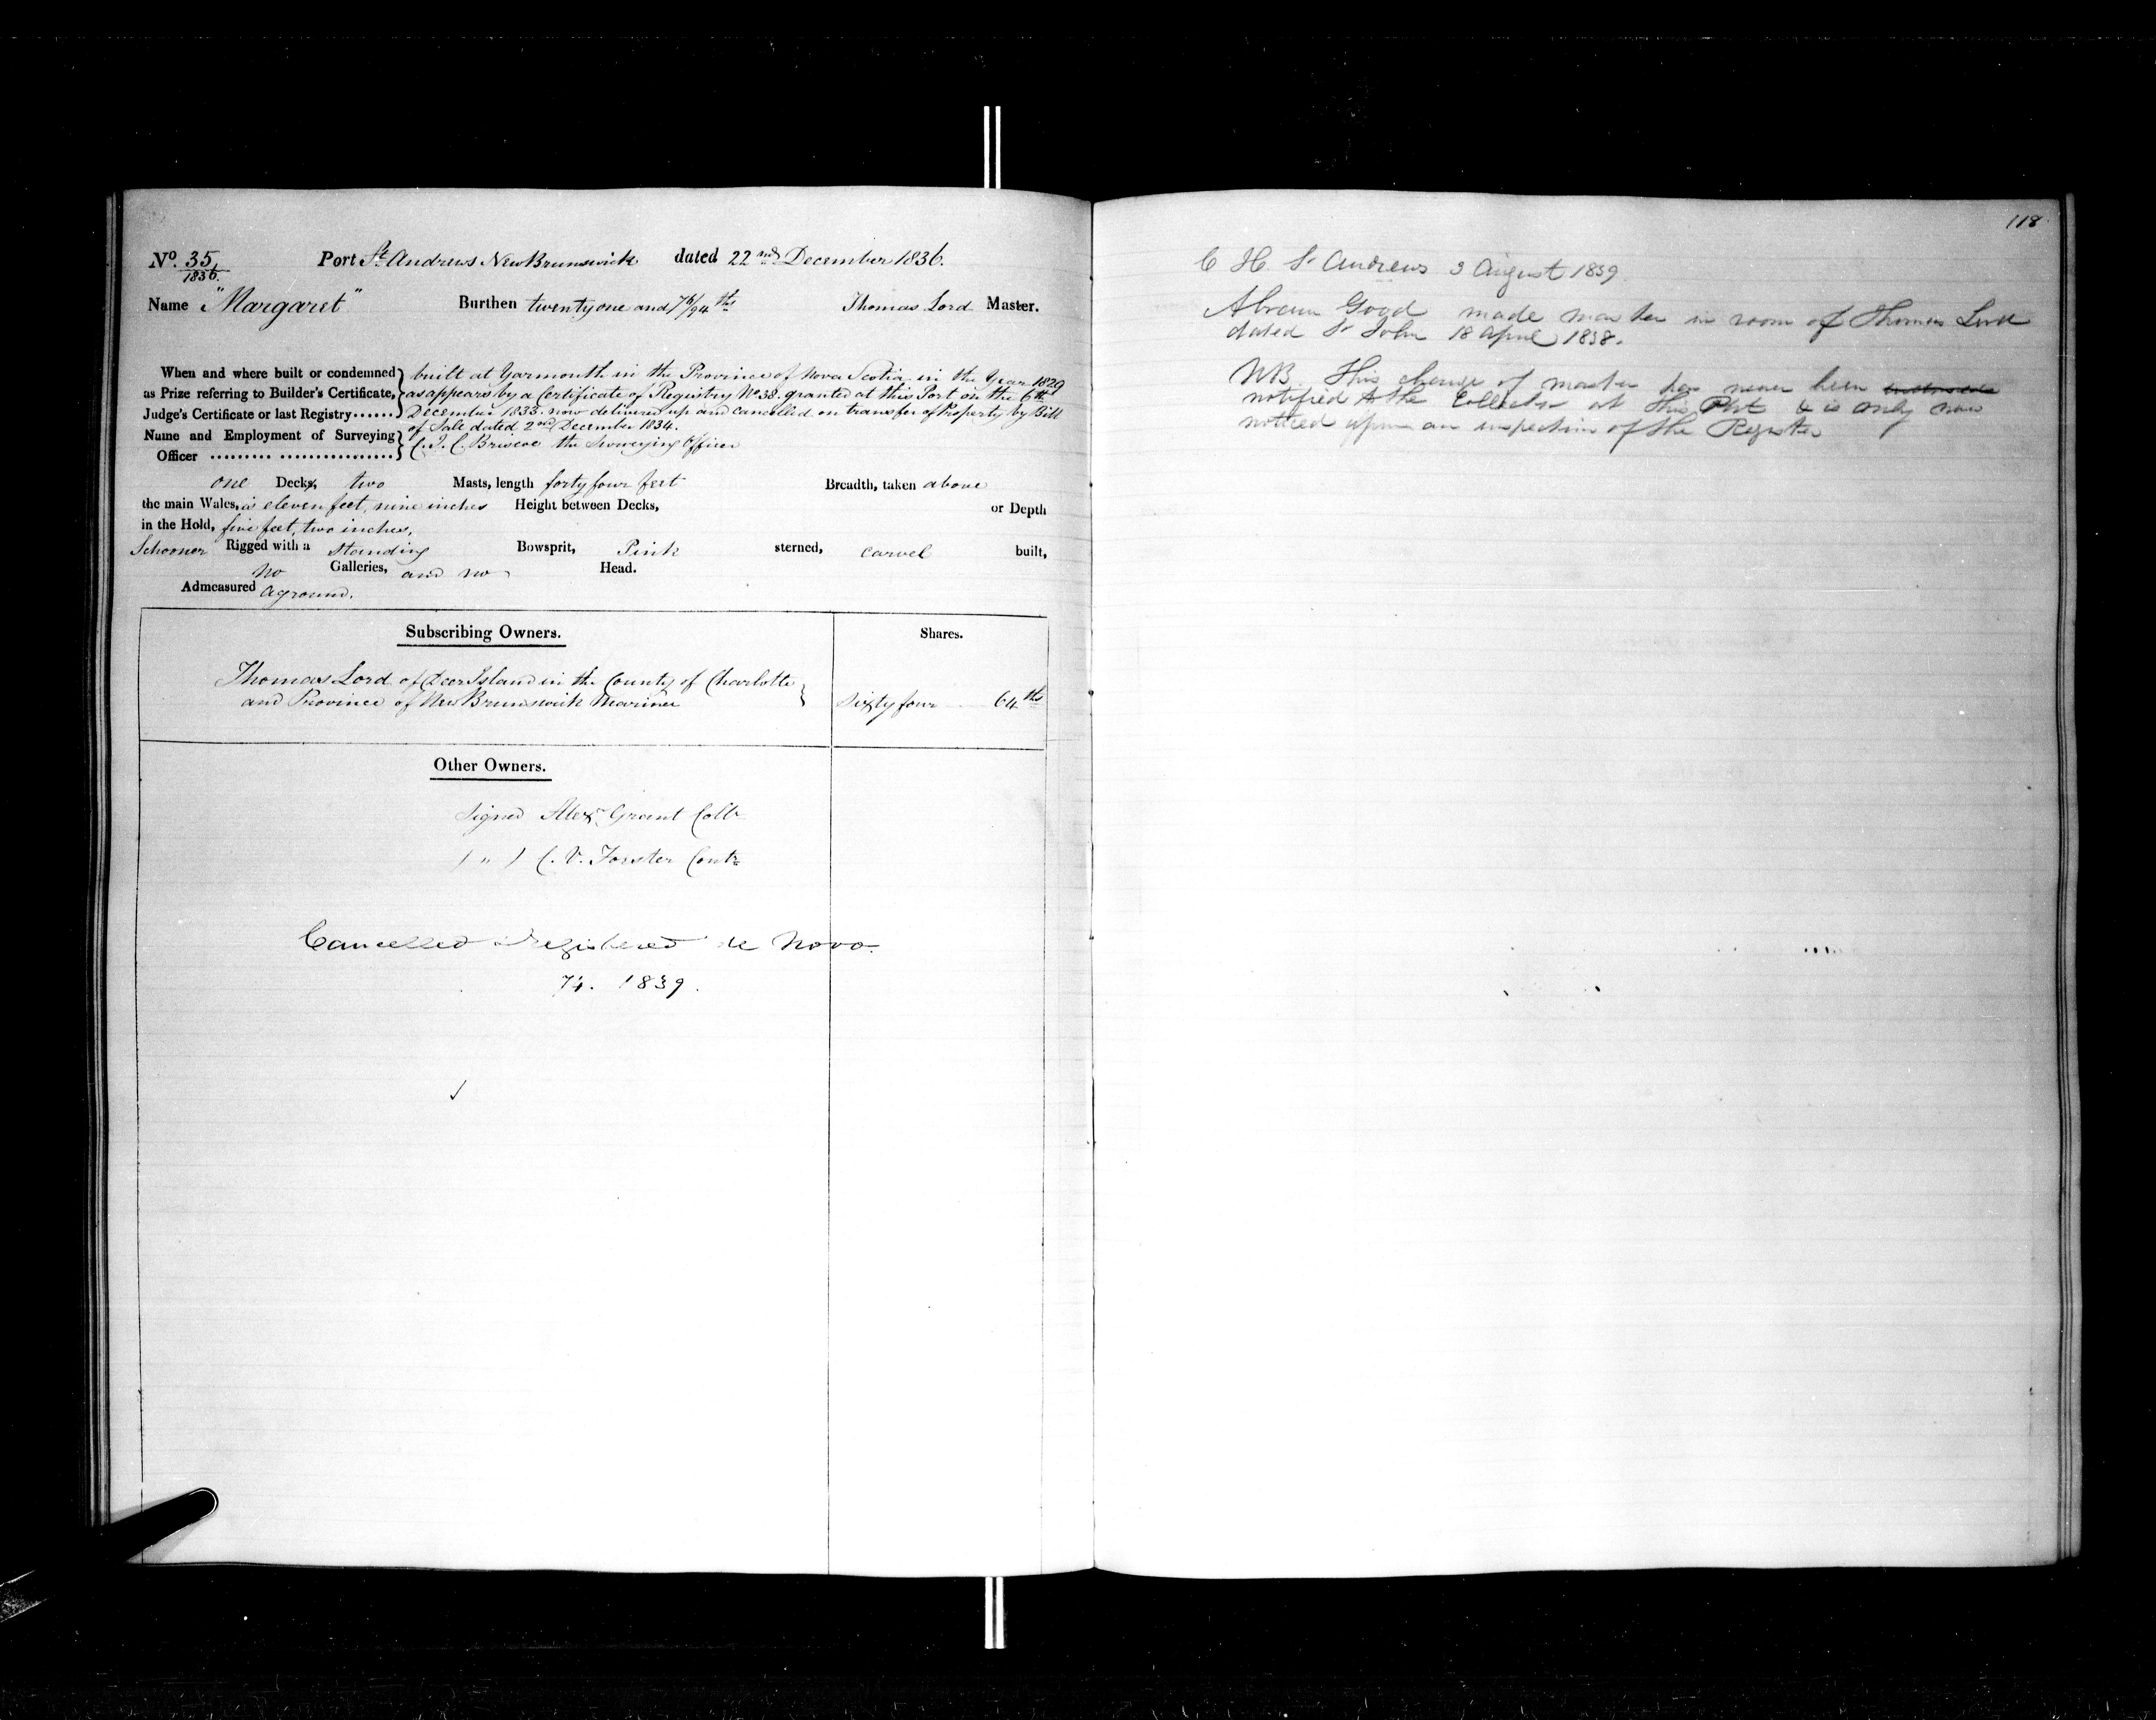 No. 35/1836. Port St. Andrews New Brunswick dated 22nd December 1836.
Name "Margaret" Burthen twenty one and 76/94ths Thomas Lord Master.
When and where built or condemned as Prize referring to Builder's Certificate, Judge's Certificate or last Registry......
built at Yarmouth in the Province of Nova Scotia in the Year 1829
as appears by a Certificate of Registry No 38. granted at this Port on the 6th
December 1833. now delivered up and cancelled on transfer of Property by Bill
of Sale dated 2nd December 1834.
Name and Employment of Surveying Officer ......... ................ C. J. C. Briscoe the Surveying Officer
one Decks, two Masts, length forty four feet Breadth, taken above
the main Wales, is eleven feet, nine inches Height between Decks, or Depth
in the Hold, five feet, two inches,
Schooner Rigged with a Standing Bowsprit, Pink sterned, carvel built,
no Galleries, and no Head.
Admeasured aground.
Subscribing Owners. Shares.
Thomas Lord of Deer Island in the County of Charlotte
and Province of New Brunswick Mariner Sixty four 64ths
Other Owners.
Signed Alexr Grant Collr
( " ) C. V. Forster Contr
Cancelled & registered de Novo.
74. 1839.
118
C H St Andrews 3 August 1839.
Abram Good made master in room of Thomas Lord
dated St John 18 April 1838.
NB. This change of master has never been
notified to the Collector at this Port & is only now
noticed upon an inspection of the Register